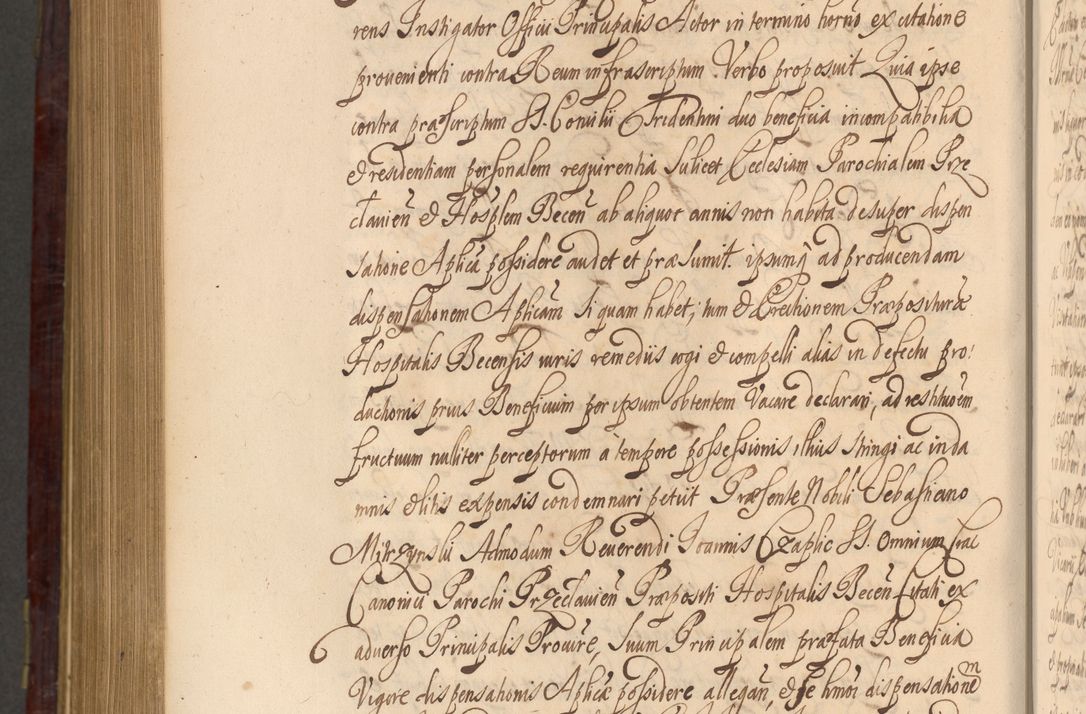 rens Instigator Officii Principalis Actor in termino horno ex citatione
provenienti contra Reum infrascriptum Verbo proposuit. Quia ipse
contra præscriptum SS. Concilii Tridentini duo beneficia incompatibilia
& residentiam personalem requirentia scilicet Ecclesiam Parochialem Prze
clavien̄ & Hosplem Becen̄ ab aliquot annis non habita desuper dispen
satione Aplica possidere audet et præsumit. ipsumq̄ ad producendam
dispensationem Aplicam si quam habet, tum & Erectionem Præpositurae
Hospitalis Becensis iuris remediis cogi & compelli alias in defectu pro:
ductionis prius Beneficium per ipsum obtentem Vacare declarari, ad restituōem
fructuum nulliter perceptorum a tempore possessionis illius stringi ac in da
mnis & litis expensis condemnari petiit Præsente Nobili Sebastiano
Mikzynskii Admodum Reverendi Joannis Czaplic SS. Omnium Crac
Canonici Parochi Przeclavien̄ Præpositi Hospitalis Becen̄ Citati ex
adverso Principalis Procure, suum Principalem præfata Beneficia
Vigore dispensationis Aplicæ possidere allegan̄, & se hmoi dispensationem